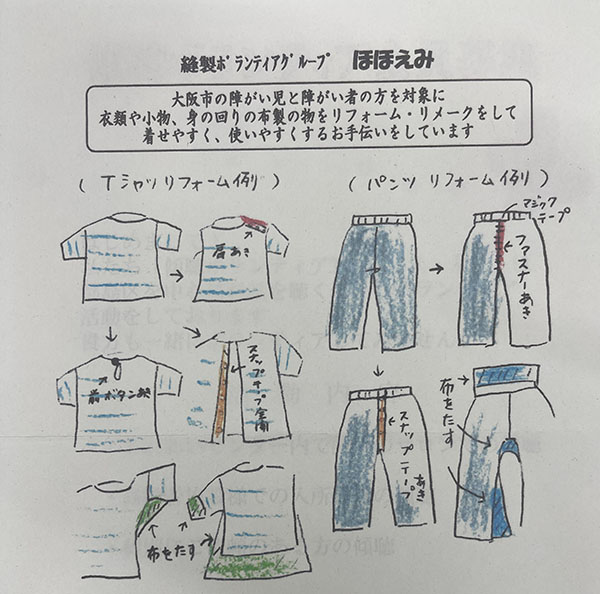 縫製ボランティアグループ ほほえみ
大阪市の障がい児と障がい者の方を対象に
衣類や小物、身の回りの布製の物をリフォーム・リメークをして
着せやすく、使いやすくするお手伝いをしています
(Tシャツリフォーム例)
(パンツ リフォーム例)
肩あき
マジック
テープ
ファスナーあき
前ボタンあき
スナップテープ全開
スナップテープあき
布をたす
布をたす